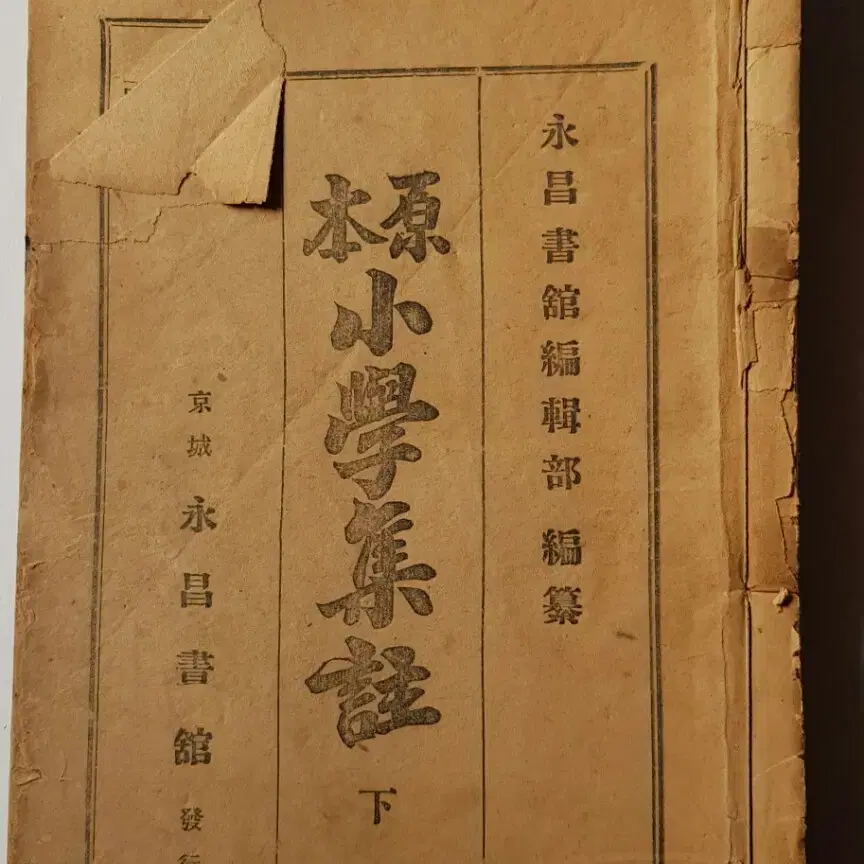 永昌書舘編輯部 編纂
原本
小學集註
下
京城 永昌書舘 發行